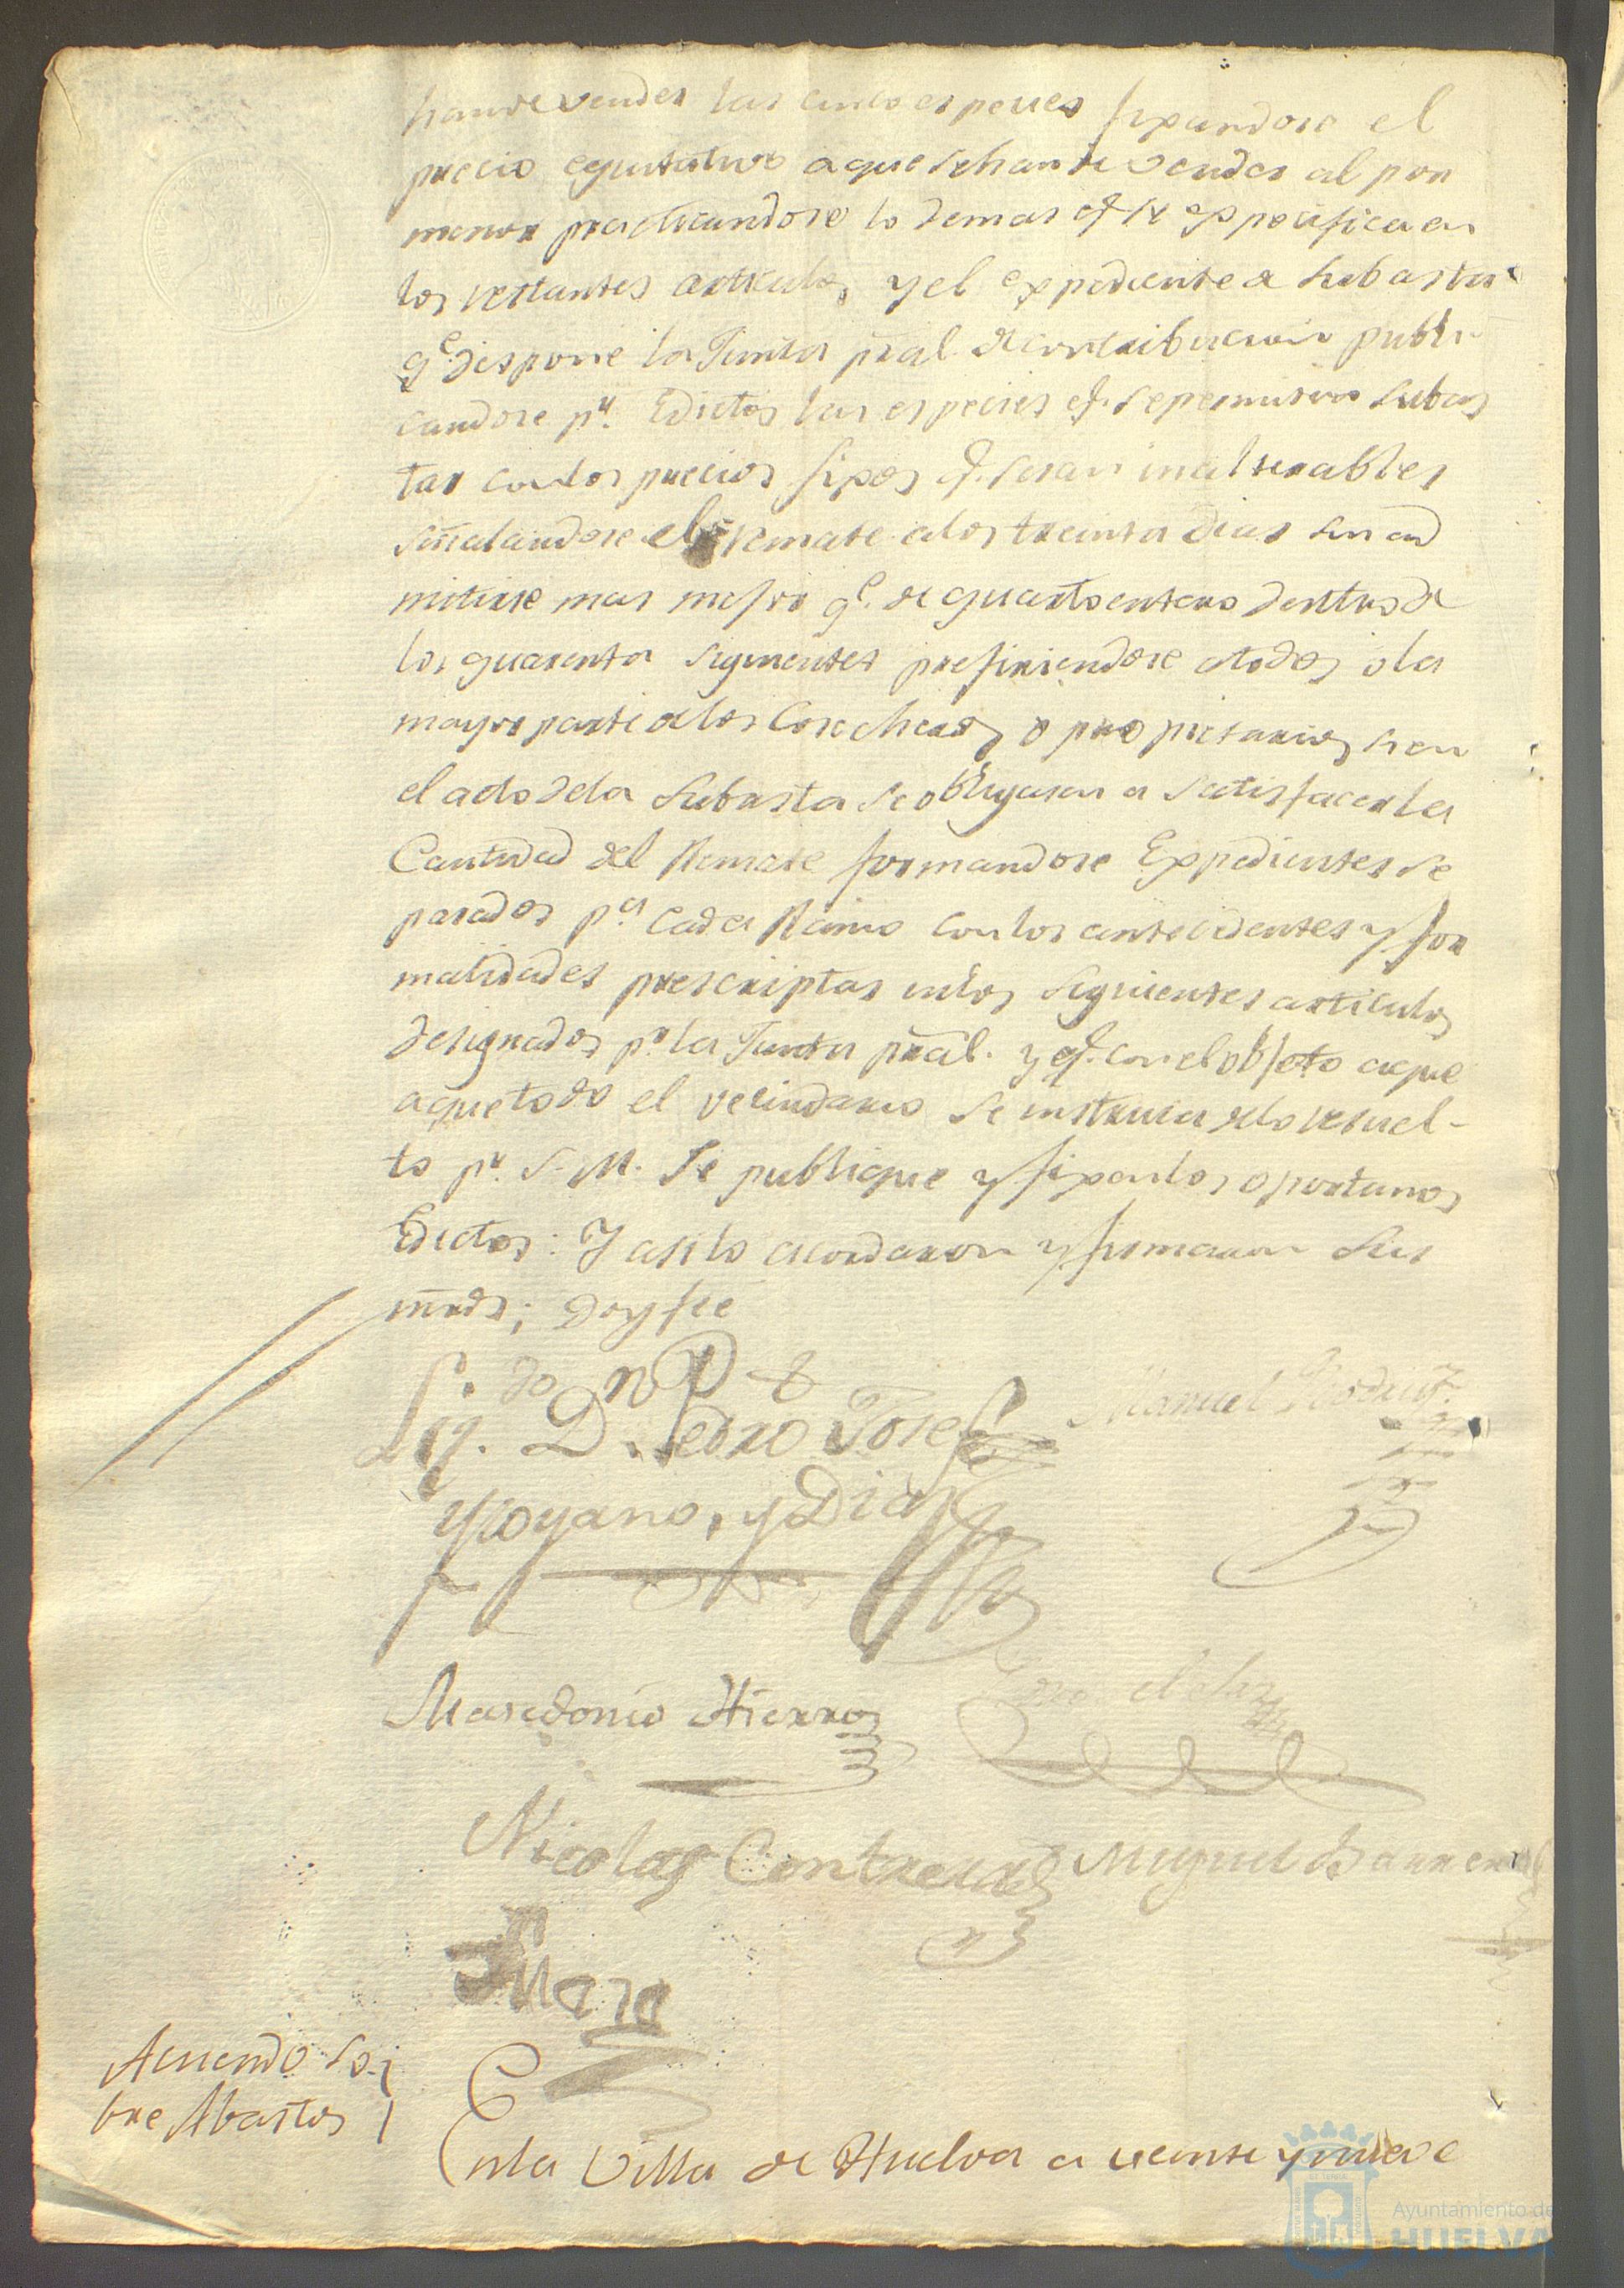 han de vender las cinco especies fixandose el
precio equitativo a que se han de vender al por
menor practicandose lo demas q.e se expecifica en
los restantes articulos, y el expediente de subastas
q.e dispone la Junta pral. de contribucion publi
candose p.r Edictos las especies q.e se permiten subas
tar con los precios fixos q.e seran inalterables
señalandose el remate a los treinta dias sin ad
mitirse mas mejora q.e de quarto entero dentro de
los quarenta siguientes prefiriendose a todos o la
mayor parte de los Cosecheros o propietarios si en
el acto de la subasta se obligasen a satisfacer la
Cantidad del Remate formandose Expedientes se
parados p.a cada Ramo con los antecedentes y for
malidades prescriptas en los siguientes articulos
designados p.r la Junta pral. y q.e con el objeto de que
a que todo el vecindario se instruia de lo resuel-
to p.r S. M. Se publique y fixen los oportunos
Edictos: Y asi lo acordaron y firmaron Sus
mrds; doy fee
Lig.do D.n Pedro Josef
Moyano, y Diaz
Manuel Rodrig.z
Masedonio Hierro
Nicolas Contreras
Miguel Barrera
Suaso
Acuerdo so-
bre Abastos
En la Villa de Huelva a veinte y nueve
Ayuntamiento de
HUELVA